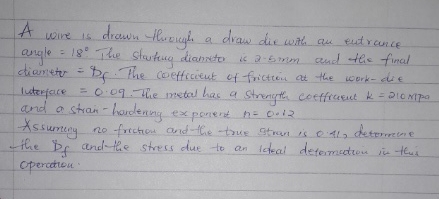 A wire is drawn through a draw die with an entrance
angle = 18° The starting diameter is 2.5mm and the final
diameter = Df. The coefficient of friction at the work-die
Interface = 0.09. The metal has a strength coefficient k = 210 MPa
and a stran-hardening exponent n = 0.12
Assuming no friction and the true stran is 0.41, determine
the Df and the stress due to an ideal determation in this
operation.